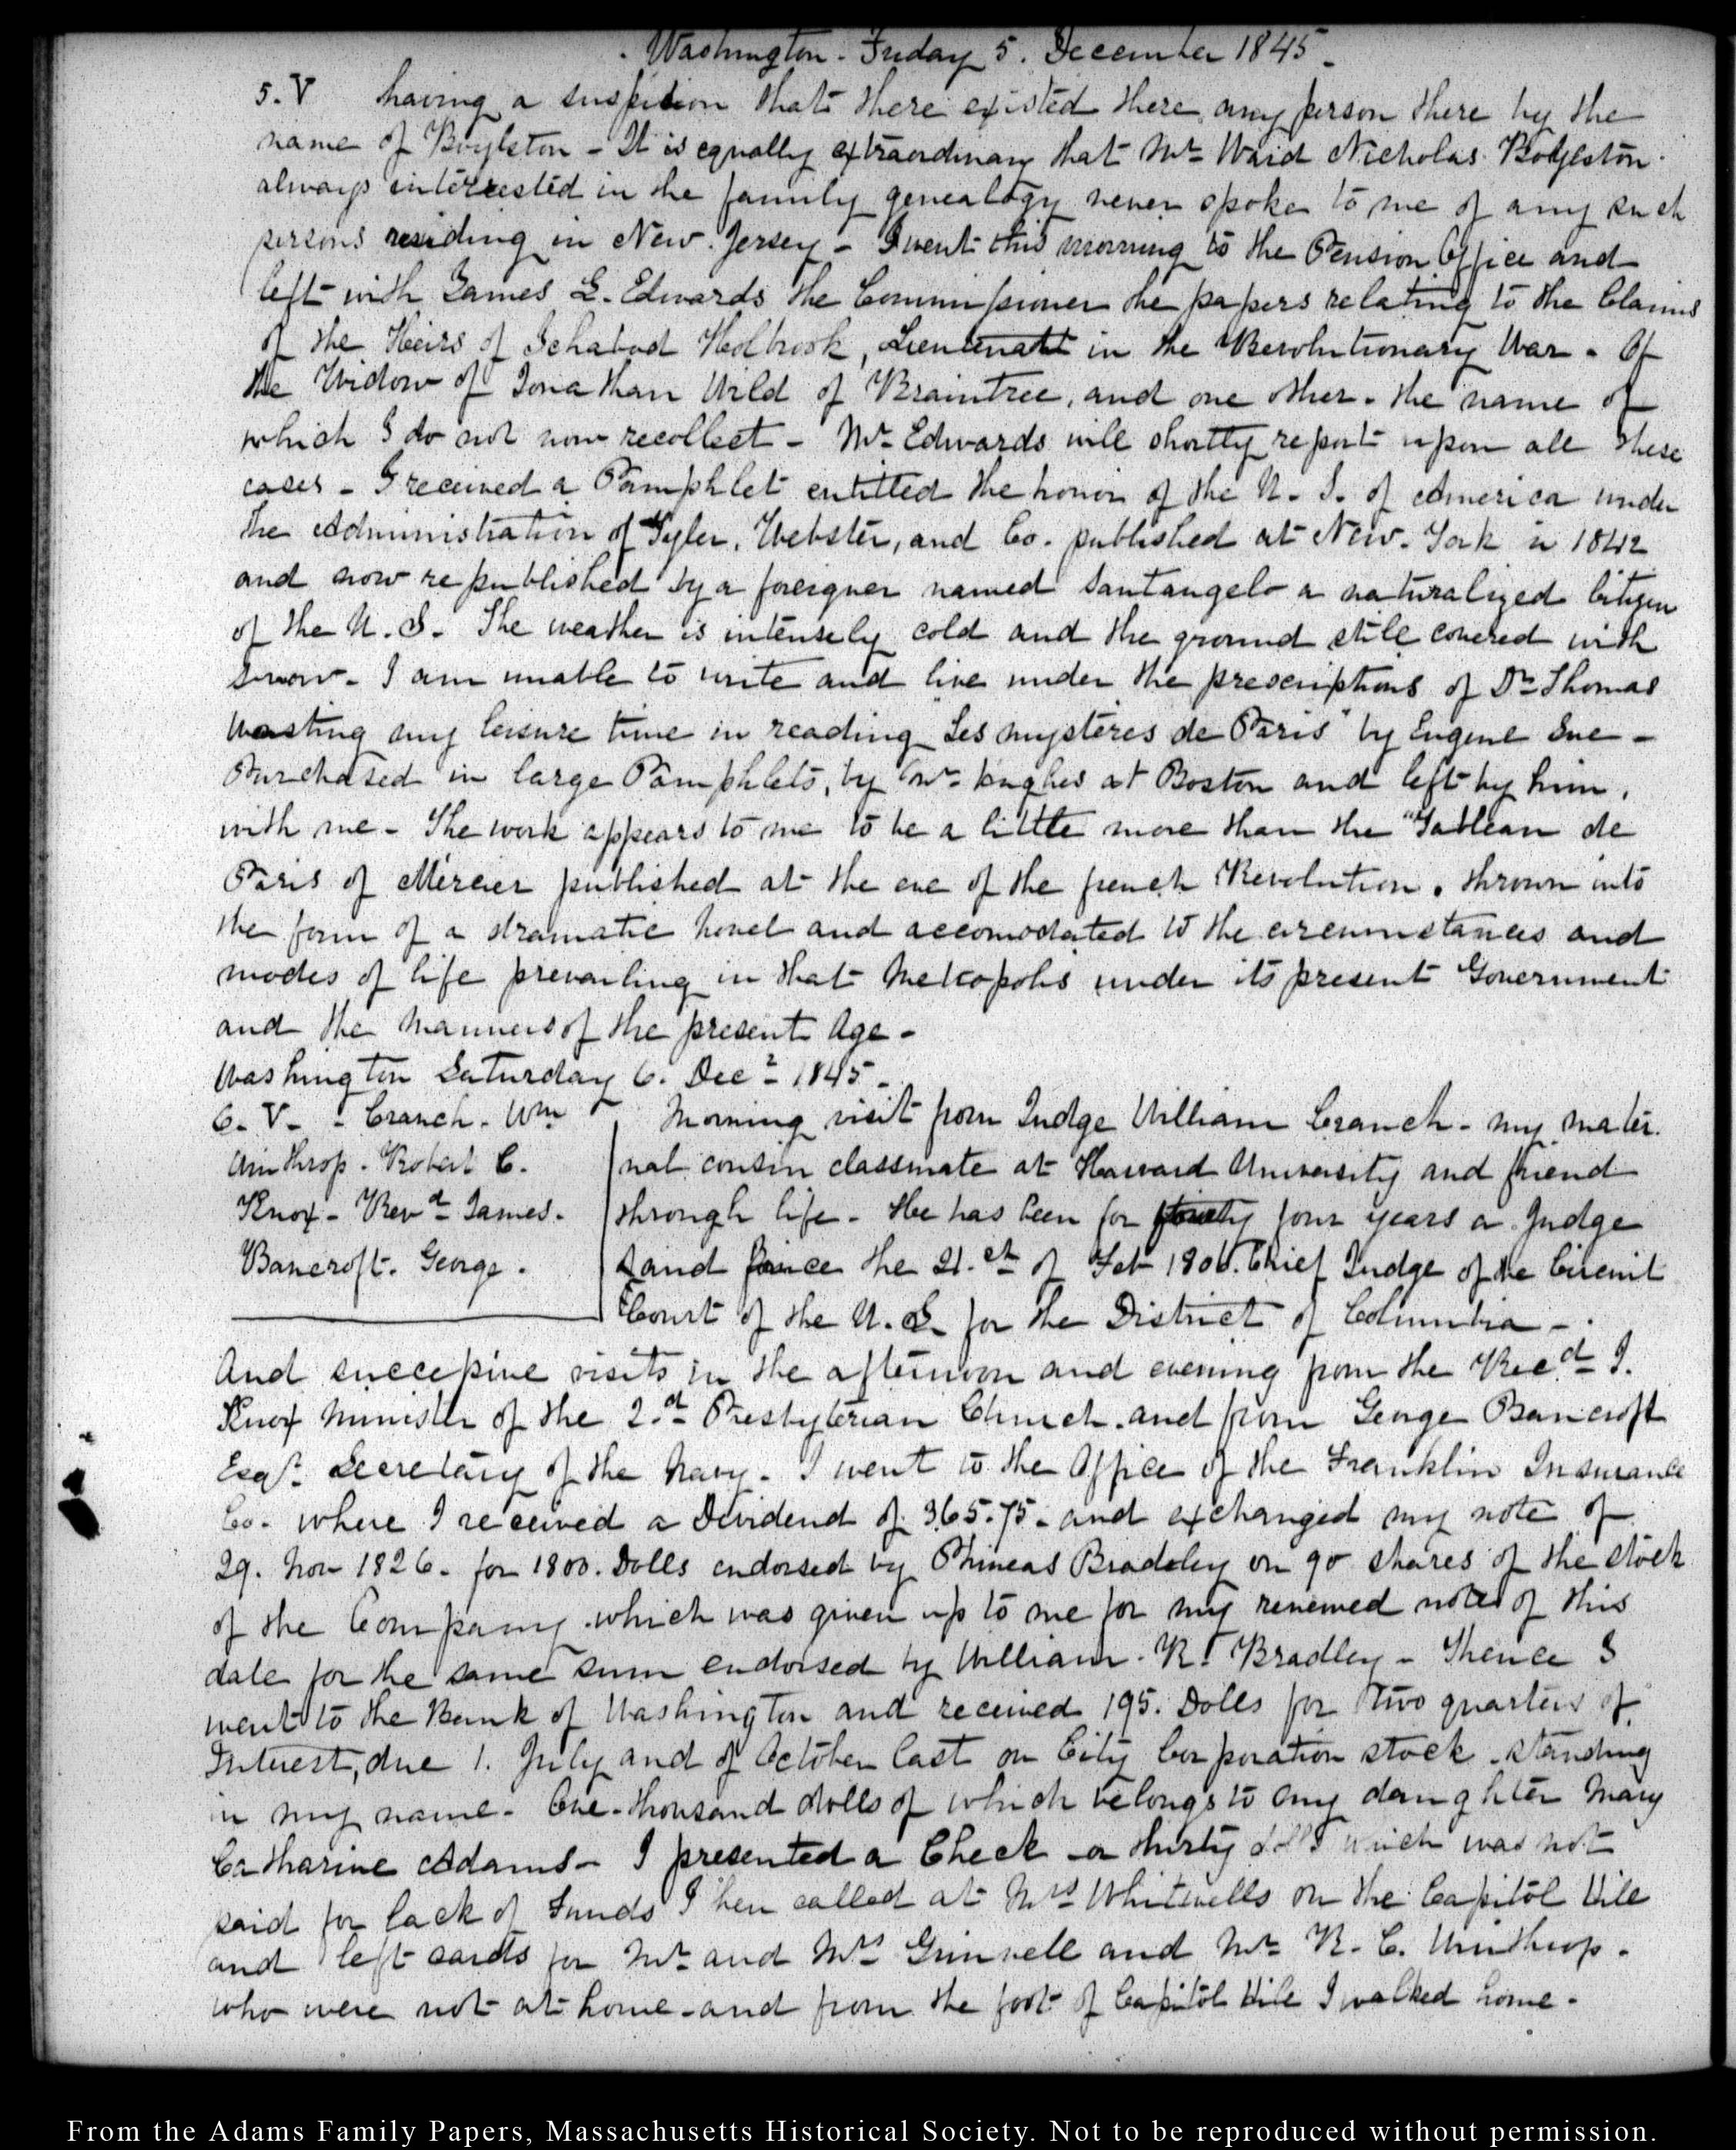 Washington. Friday 5. December 1845.
5. V having a suspicion that there existed there any person there by the
name of Boylston - It is equally extraordinary that Mr Ward Nicholas Boylston
always interested in the family genealogy never spoke to me of any such
persons residing in New. Jersey - I went this morning to the Pension Office and
left with James L. Edwards the Commissioner the papers relating to the Claims
of the Heirs of Ichabod Holbrook, Lieutenant in the Revolutionary War. Of
the Widow of Jonathan Wild of Braintree, and one other. the name of
which I do not now recollect - Mr Edwards will shortly report upon all these
cases - I received a Pamphlet entitled the honor of the U. S. of America under
the Administration of Tyler, Webster, and Co. published at New. York in 1842
and now republished by a foreigner named Santangelo a naturalized Citizen
of the U. S. The weather is intensely cold and the ground still covered with
snow. I am unable to write and live under the prescriptions of Dr Thomas
wasting my leisure time in reading Les mystères de Paris" by Eugene Sue -
Purchased in large Pamphlets, by Mr Hughes at Boston and left by him,
with me - The work appears to me to be a little more than the "Tableau de
Paris of Mercier published at the eve of the french Revolution. thrown into
the form of a dramatic novel and accomodated to the circumstances and
modes of life prevailing in that Metropolis under its present Government
and the manners of the present Age -
Washington Saturday 6. Decr 1845 -
6. V. - Cranch. Wm Morning visit from Judge William Cranch - my mater-
Winthrop. Robert C. nal cousin classmate at Harvard University and friend
Knox - Revd James. through life - He has been for forty four years a Judge
Bancroft. George. and since the 21.st of Feb 1806. Chief Judge of the Circuit
Court of the U. S. for the District of Columbia -
And successive visits in the afternoon and evening from the Revd J.
Knox Minister of the 2.d Presbyterian Church. and from George Bancroft
Esqr. Secretary of the Navy. I went to the Office of the Franklin Insurance
Co. where I received a Dividend of 365.75. and exchanged my note of
29. Nov 1826. for 1800. Dolls endorsed by Phineas Bradley on 90 shares of the stock
of the Company which was given up to me for my renewed note of this
date for the same sum endorsed by William. R. Bradley - Thence I
went to the Bank of Washington and received 195. Dolls for two quarters of
Interest, due 1. July and of October last on City Corporation stock. standing
in my name - One-thousand dolls of which belongs to my daughter Mary
Catharine Adams - I presented a Check thirty dolls which was not
paid for lack of Funds I then called at Mrs Whitwells on the Capitol Hill
and left cards for Mr and Mrs Grinnell and Mr R. C. Winthrop.
who were not at home - and from the foot of Capitol Hill I walked home.
From the Adams Family Papers, Massachusetts Historical Society. Not to be reproduced without permission.